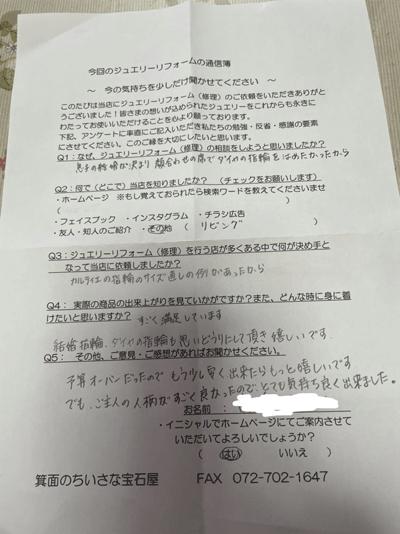 今回のジュエリーリフォームの通信簿
～ 今の気持ちを少しだけ聞かせてください ～
このたびは当店にジュエリーリフォーム（修理）のご依頼をいただきありがと
うございました！皆さまの想いが込められたジュエリーをこれからも永きに
わたってお使いいただけることを心より願っております。
下記、アンケートに率直にご記入いただき私たちの勉強・反省・感謝の要素
にさせてください。このご縁を大切にしたいと思います。
Q1：なぜ、ジュエリーリフォーム（修理）の相談をしようと思いましたか？
息子の結婚が決まり顔合わせの席でダイヤの指輪をはめたかったから
Q2：何で（どこで）当店を知りましたか？ （チェックをお願いします）
・ホームページ ※もし覚えておられたら検索ワードを教えてくださいませ
（ ）
・フェイスブック ・インスタグラム ・チラシ広告
・友人・知人のご紹介 ・その他 （ リビング ）
Q3：ジュエリーリフォーム（修理）を行う店が多くある中で何が決め手と
なって当店に依頼しましたか？
カルティエの指輪のサイズ直しの例があったから
Q4： 実際の商品の出来上がりを見ていかがですか？また、どんな時に身に着
けたいと思いますか？ すごく満足しています
結婚指輪、ダイヤの指輪も思いどうりにして頂き嬉しいです。
Q5： その他、ご意見・ご感想があればお聞かせください。
予算オーバーだったので もう少し安く出来たらもっと嬉しいです
でも、ご主人の人柄がすごく良かったので、とても気持ち良く出来ました。
お名前：
・イニシャルでホームページにてご案内させて
いただいてよろしいでしょうか？
（ はい いいえ ）
箕面のちいさな宝石屋 FAX 072-702-1647